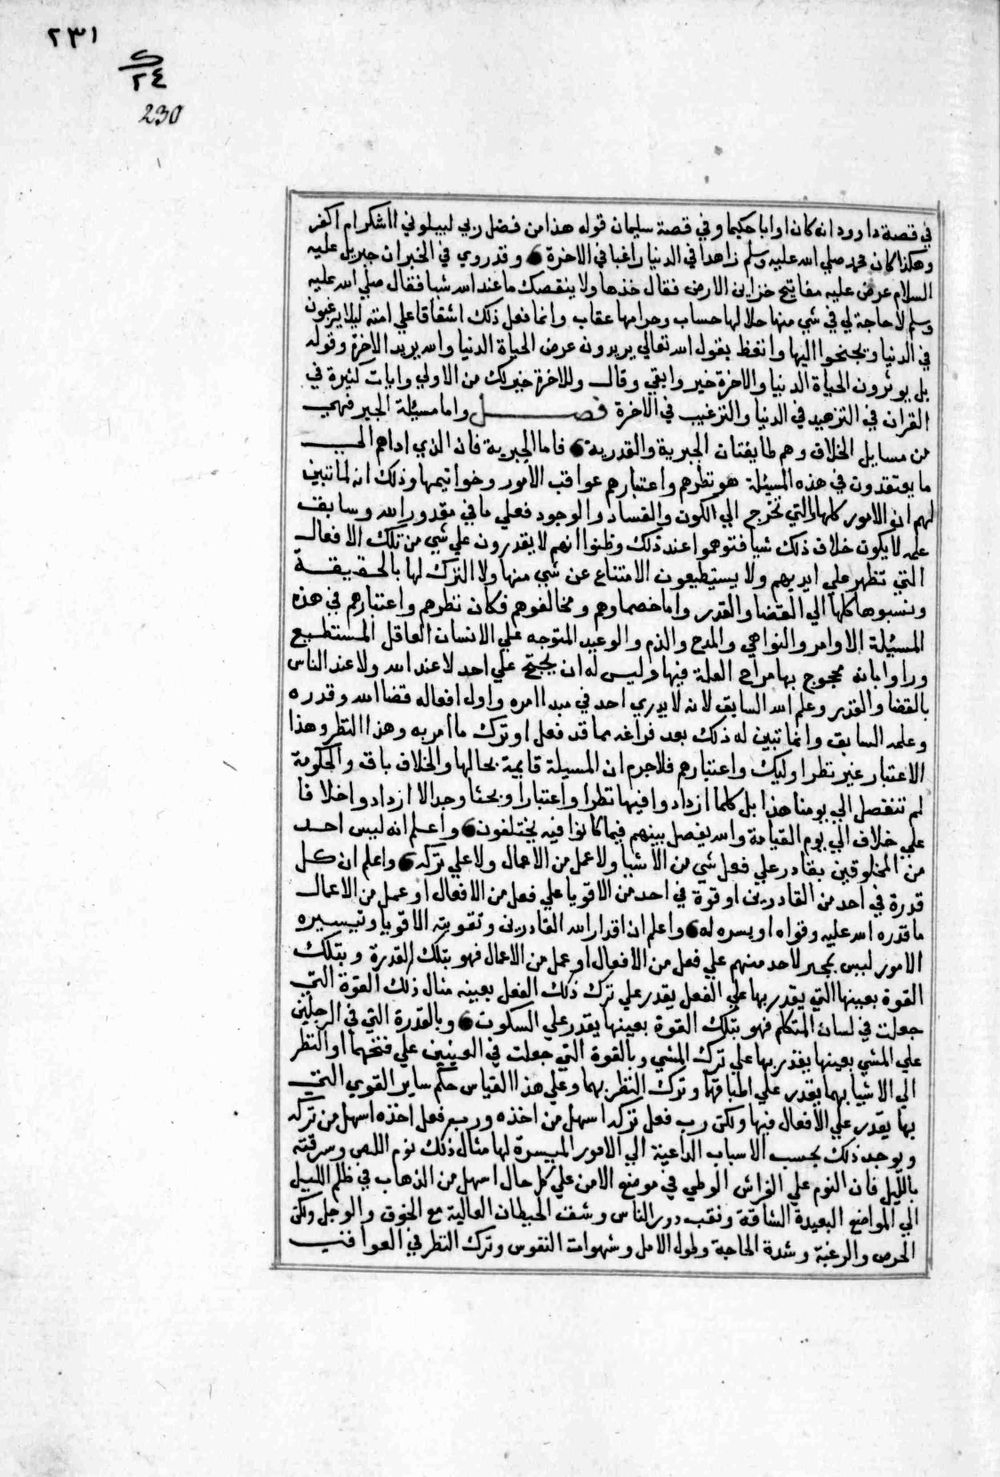 ٢٣١
ى
٢٤
230
في قصة داوود انه كان اوابا حكيما وفي قصة سليمان قوله هذا من فضل ربي ليبلوني ااشكر ام اكفر
وهكذا كان محمد صلي الله عليه وسلم زاهدا في الدنيا راغبا في الاخرة وقد روي في الخبر ان جبريل عليه
السلام عرض عليه مفاتيح خزاين الارض فقال خذها ولا ينقصك ما عند الله شيا فقال صلي الله عليه
وسلم لا حاجة لي في شي منها حلالها حساب وحرامها عقاب وانما فعل ذلك اشفاقا علي امته ليلا يرغبون
في الدنيا ويجنحوا اليها واتعظ بقول الله تعالي يريدون عرض الحياة الدنيا والله يريد الاخرة وقوله
بل يوثرون الحياة الدنيا والاخرة خير وابقي وقال وللاخرة خير لك من الاولي وايات كثيرة في
القران في التزهيد في الدنيا والترغيب في الاخرة فصل واما مسيلة الجبر فهي
من مسايل الخلاف وهم طايفتان الجبرية والقدرية فاما الجبرية فان الذي اداهم الي
ما يعتقدون في هذه المسيلة هو نظرهم واعتبارهم عواقب الامور وخواتيمها وذلك انه لما تبين
لهم ان الامور كلها التي تخرج الي الكون والفساد والوجود فعلي ما في مقدور الله وسابق
علمه لا يكون خلاف ذلك شيا فتوهموا عند ذلك وظنوا انهم لا يقدرون علي شي من تلك الافعال
التي تظهر علي ايديهم ولا يستطيعون الامتناع عن شي منها ولا الترك لها بالحقيقة
ونسبوها كلها الي القضا والقدر واما خصماوهم ومخالفوهم فكان نظرهم واعتبارهم في هذه
المسيلة الاوامر والنواهي والمدح والذم والوعيد المتوجه علي الانسان العاقل المستطيع
وراوا بانه محجوج بها مراح العلة فيها وليس له ان يحتج علي احد لا عند الله ولا عند الناس
بالقضا والقدر وعلم الله السابق لانه لا يدري احد في مبدا امره واول افعاله قضا الله وقدره
وعلمه السابق وانما تبين له ذلك بعد فراغه مما قد فعل او ترك ما امر به وهذا النظر وهذا
الاعتبار غير نظر اوليك واعتبارهم فلا جرم ان المسيلة قايمة بحالها والخلاف باق والحكومة
لم تنفصل الي يومنا هذا بل كلما ازدادوا فيها نظرا واعتبارا وبحثا وجدالا ازدادوا خلافا
علي خلاف الي يوم القيامة والله يفصل بينهم فيما كانوا فيه يختلفون واعلم انه ليس احد
من المخلوقين بقادر علي فعل شي من الاشيا ولا عمل من الاعمال ولا علي تركه واعلم ان كل
قدرة في احد من القادرين او قوة في احد من الاقويا علي فعل من الافعال او عمل من الاعمال
ما قدره الله عليه وقواه او يسره له واعلم ان اقدار الله القادرين وتقويته الاقويا وتيسيره
الامور ليس يجبر لاحد منهم علي فعل من الافعال او عمل من الاعمال فهو بتلك القدرة وبتلك
القوة بعينها التي يقدر بها علي الفعل يقدر علي ترك ذلك الفعل بعينه مثال ذلك القوة التي
جعلت في لسان المتكلم فهو بتلك القوة بعينها يقدر علي السكوت وبالقدرة التي في الرجلين
علي المشي بعينها يقدر بها علي ترك المشي وبالقوة التي جعلت في العينين علي فتحهما او النظر
الي الاشيا بهما يقدر علي اطباقها وترك النظر بهما وعلي هذا القياس حكم ساير القوي التي
بها يقدر علي الافعال فيها ولكن رب فعل تركه اسهل من اخذه ورب فعل اخذه اسهل من تركه
ويوجد ذلك بحسب الاسباب الداعية الي الامور الميسرة لها مثال ذلك نوم اللص وسرقته
بالليل فان النوم علي الفراش الوطي في موضع الامن علي كل حال اسهل من الذهاب في ظلم الليل
الي المواضع البعيدة الشاقة ونقب دور الناس وشف الحيطان العالية مع الخوف والوجل ولكن
الحرص والرغبة وشدة الحاجة وطول الامل وشهوات النفوس وترك النظر في العواقب